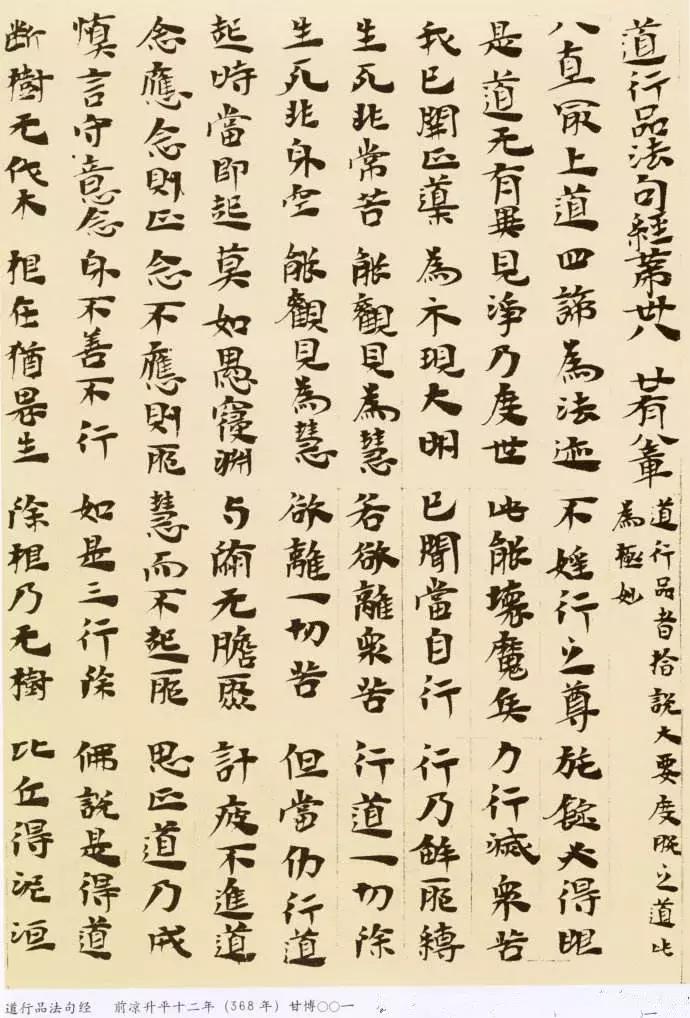 道行品法句經苐卅八 廿有八章
道行品者指說大要度脫之道此
為極妙
八直冣上道 四諦為法迹 不婬行之尊 施鐙必得眼
是道无有異 見淨乃度世 此能壞魔兵 力行滅衆苦
我已開正道 為示現大明 已聞當自行 行乃解耶縛
生死非常苦 能觀見為慧 若欲離衆苦 行道一切除
生死非身空 能觀見為慧 欲離一切苦 但當仂行道
起時當即起 莫如愚寢淵 与墮无瞻聚 計疲不進道
念應念則正 念不應則耶 慧而不起耶 思正道乃成
慎言守意念 身不善不行 如是三行除 佛說是得道
断樹无伐本 根在猶畏生 除根乃无樹 比丘得泥洹
道行品法句经 前凉升平十二年（368年）甘博○○一
一